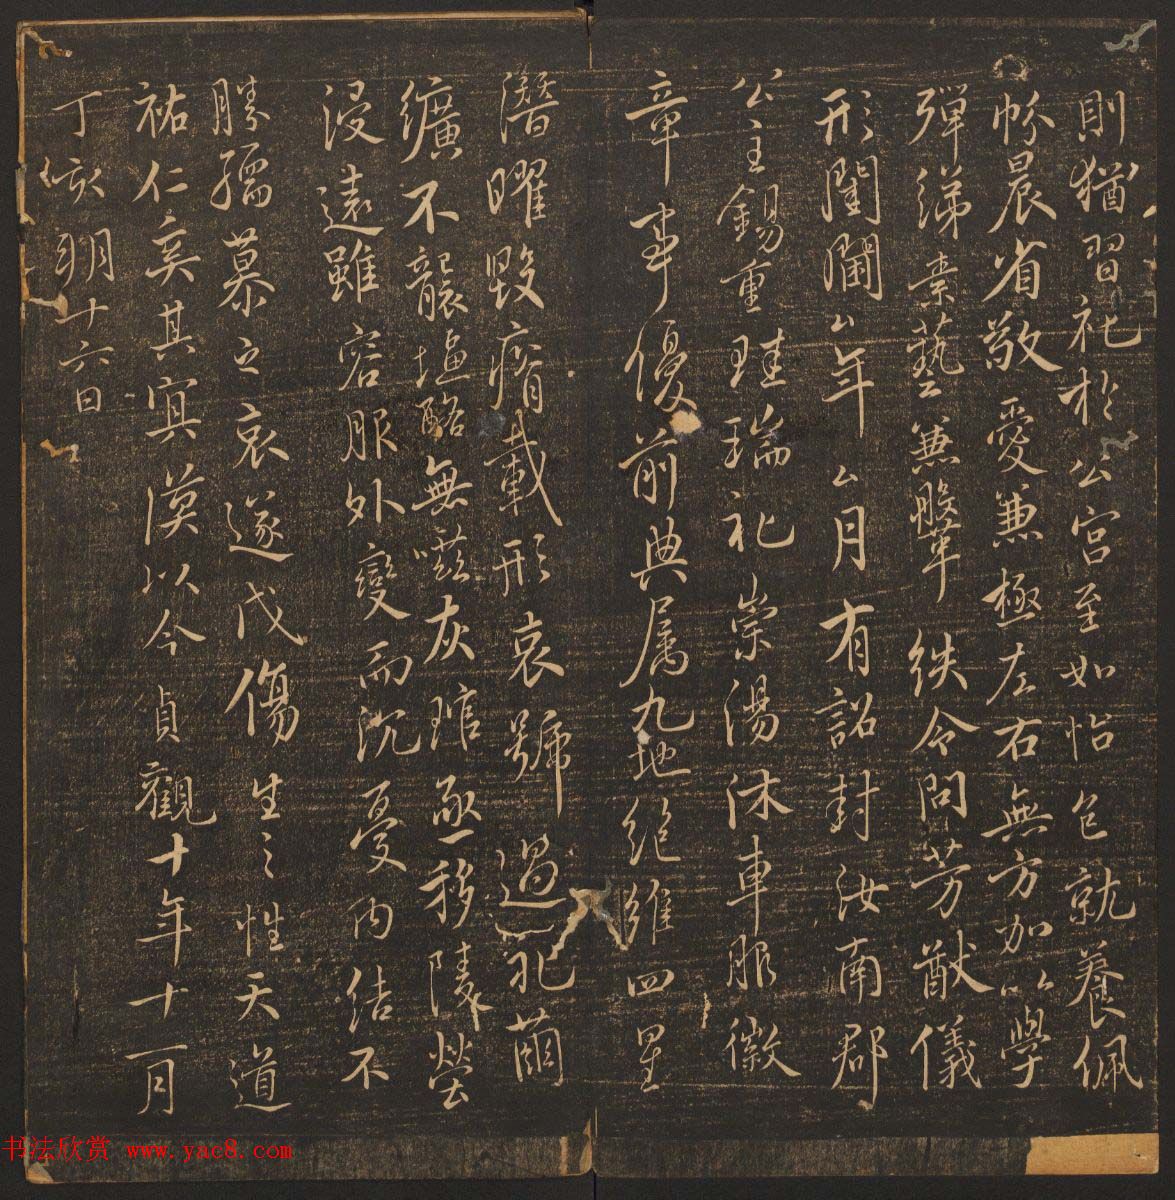 則猶習礼於公宮至如怡色就養佩
帉晨省敬愛兼極左右無方加以學
殫綈素藝兼鞶紩令問芳猷儀
形閨閫厶年厶月有詔封汝南郡
公主錫重珪瑞礼崇湯沐車服徽
章事優前典属九地絕維四星
潛曜毀瘠載形哀號過礼繭
纊不襲塩酪無嗞灰琯亟移陵塋
浸遠雖容服外變而沉憂內結不
勝孺慕之哀遂戊傷生之性天道
祐仁奚其冥漠以今貞觀十年十一月
丁亥朔十六日
书法欣赏 www.yac8.com